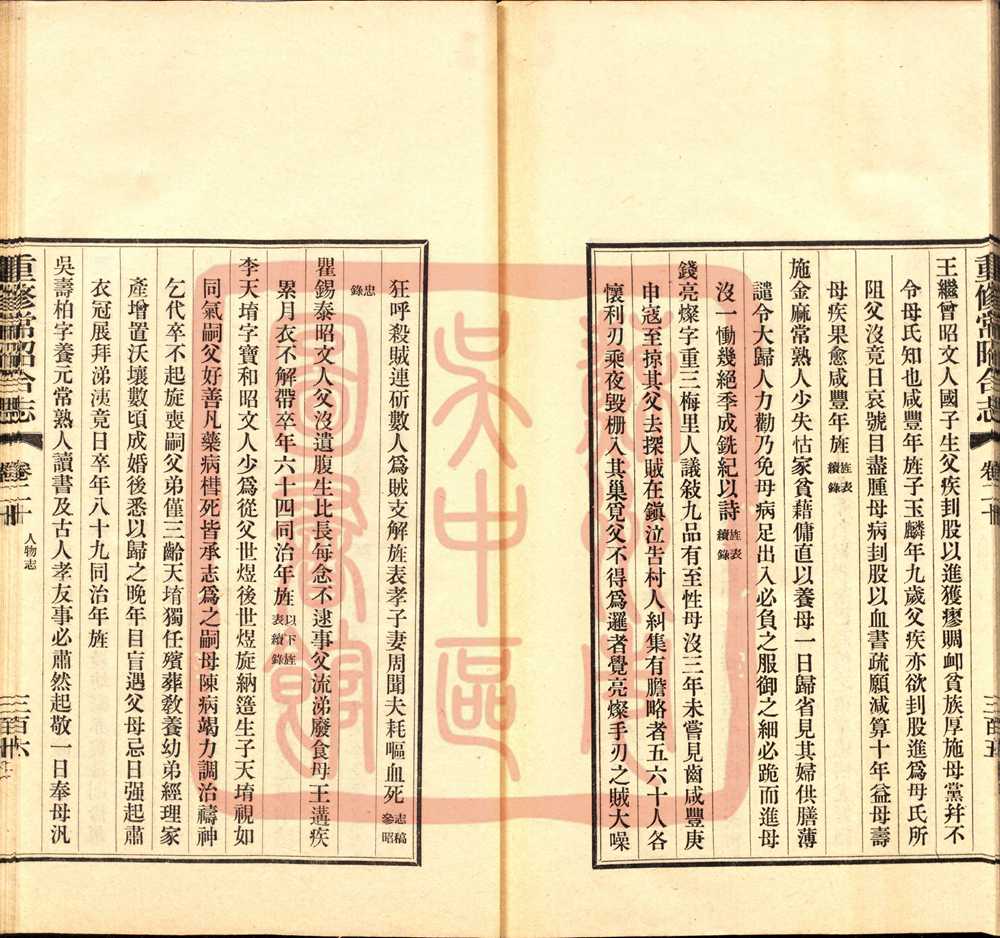 王繼曾昭文人國子生父疾刲股以進獲瘳賙䘏貧族厚施母黨幷不
令母氏知也咸豐年旌子玉麟年九歲父疾亦欲刲股進爲母氏所
阻父沒竟日哀號目盡腫母病刲股以血書疏願減算十年益母壽
母疾果愈咸豐年旌旌表續錄
施金麻常熟人少失怙家貧藉傭直以養母一日歸省見其婦供膳薄
譴令大歸人力勸乃免母病足出入必負之服御之細必跪而進母
沒一慟幾絕季成銑紀以詩旌表續錄
錢亮燦字重三梅里人議敍九品有至性母沒三年未嘗見齒咸豐庚
申寇至掠其父去探賊在鎮泣告村人糾集有膽略者五六十人各
懷利刃乘夜毀柵入其巢覓父不得爲邏者覺亮燦手刃之賊大噪
狂呼殺賊連斫數人爲賊支解旌表孝子妻周聞夫耗嘔血死志稿參昭
忠錄
瞿錫泰昭文人父沒遺腹生比長每念不逮事父流涕廢食母王遘疾
累月衣不解帶卒年六十四同治年旌以下旌表續錄
李天堉字寶和昭文人少爲從父世煜後世煜旋納簉生子天堉視如
同氣嗣父好善凡藥病槥死皆承志爲之嗣母陳病竭力調治禱神
乞代卒不起旋喪嗣父弟僅三齡天堉獨任殯葬敎養幼弟經理家
產增置沃壤數頃成婚後悉以歸之晚年目盲遇父母忌日强起肅
衣冠展拜涕洟竟日卒年八十九同治年旌
吳壽柏字養元常熟人讀書及古人孝友事必肅然起敬一日奉母汎
重修常昭合志
卷二十
人物志
三百六
重修常昭合志
三百五
蘇州
吳中區
圖書館